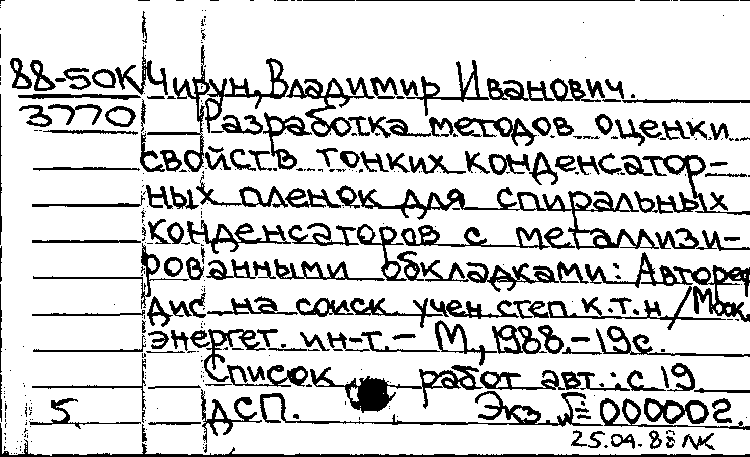 88-50К Чирун, Владимир Иванович.
3770 Разработка методов оценки
свойств тонких конденсатор-
ных пленок для спиральных
конденсаторов с металлизи-
рованными обкладками: Автореф
дис на соиск учен степ. к.т.н / Моск.
энергет. ин-т. - М., 1988. - 19с.
Список работ авт.: с 19.
5. ДСП. Экз. № 000002.
25.04.88 ЛК